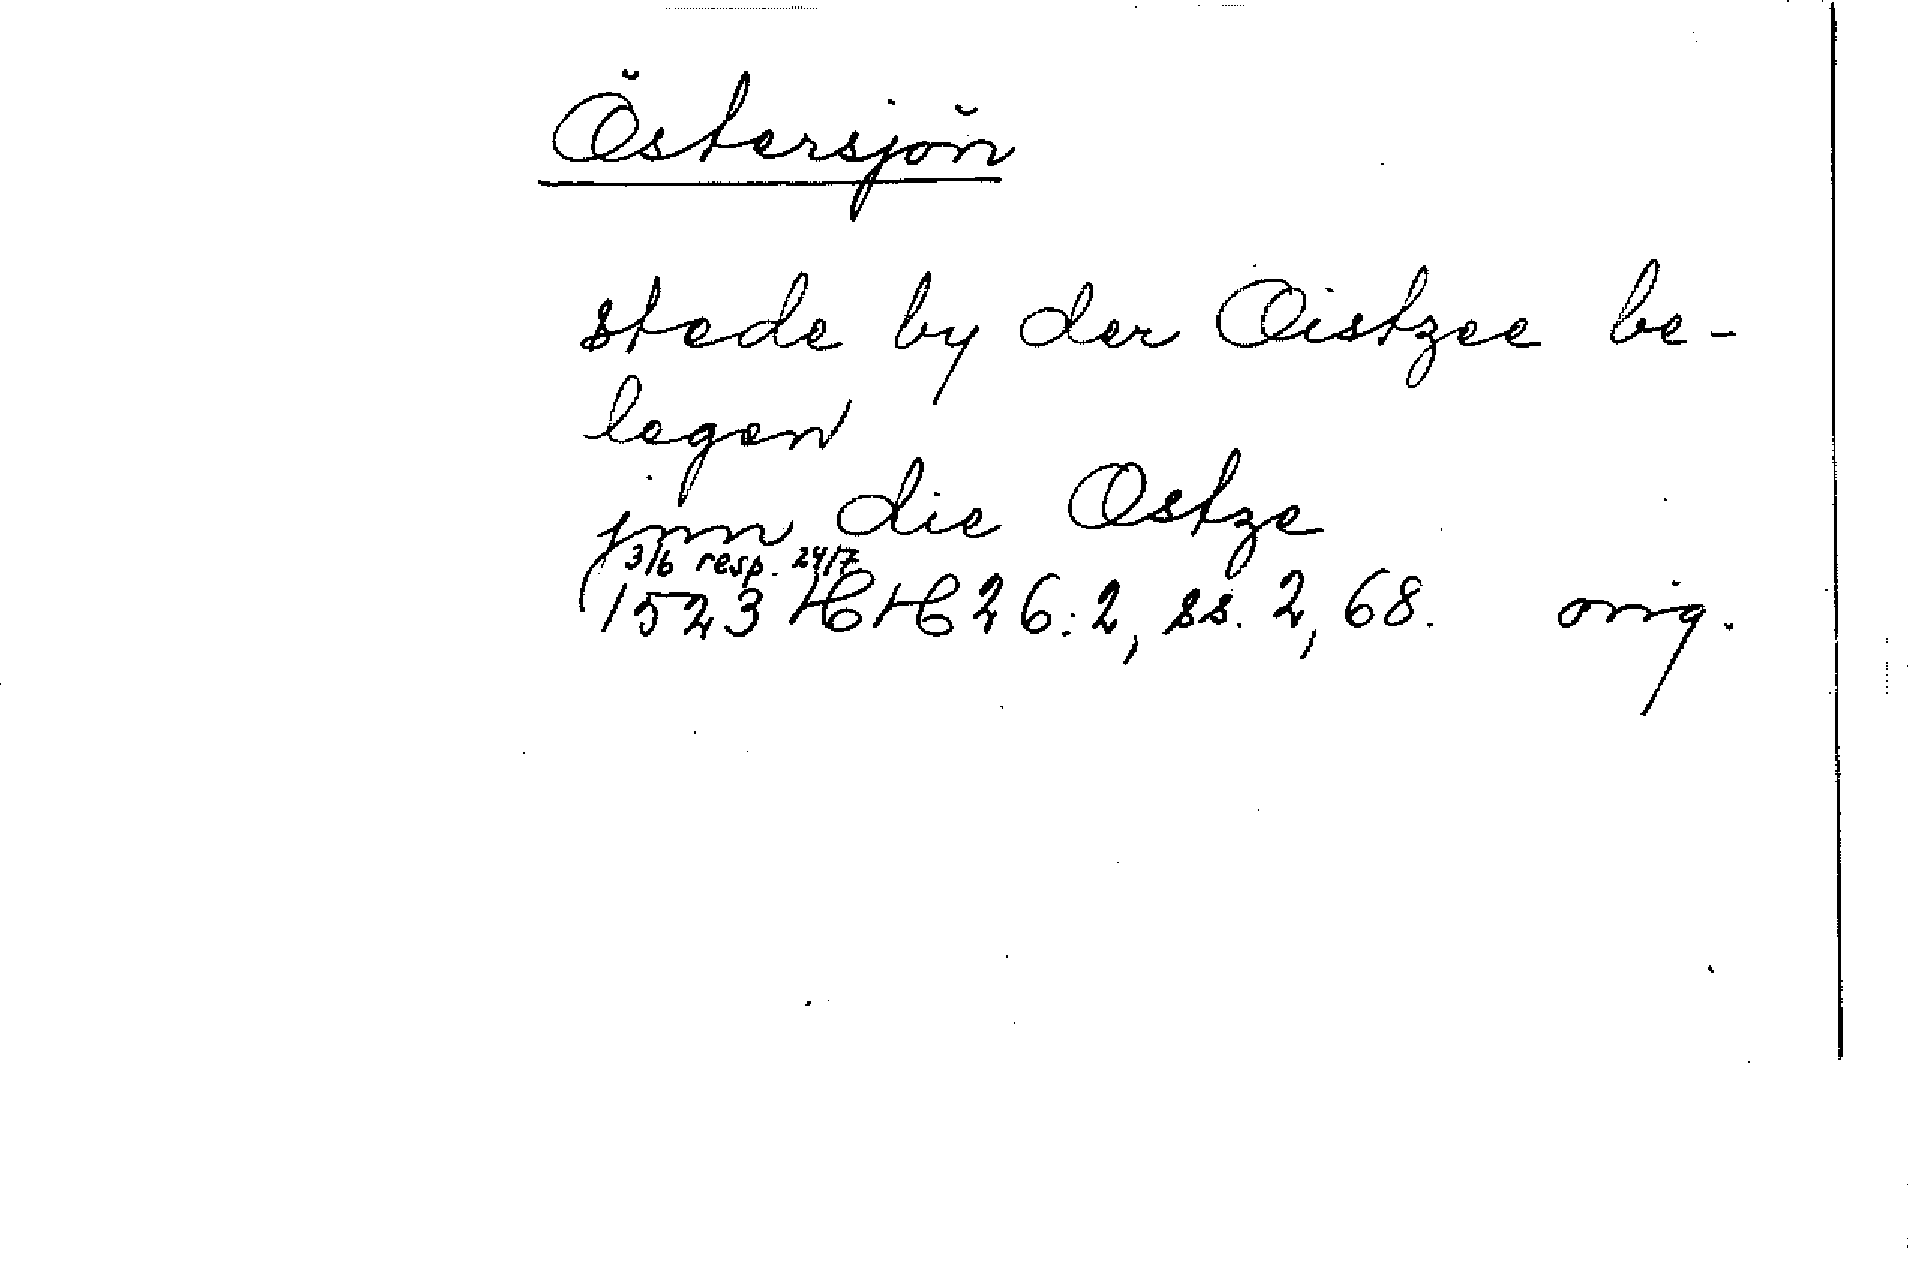 Östersjön
stede by der Oistzee be-
legen
jnn die Ostze
3/6 resp. 24/7
1523 HH 26:2, ss. 2, 68. orig.